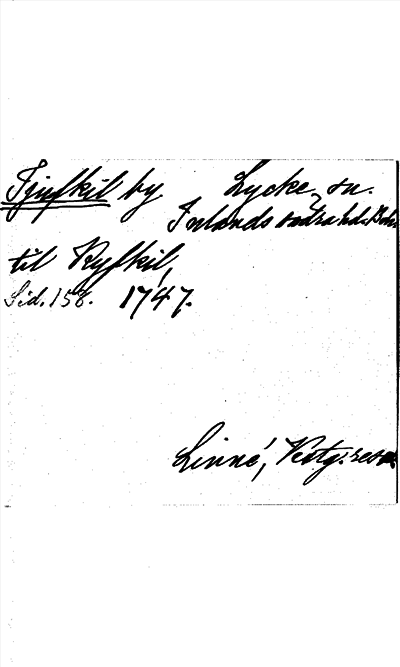 Tjufkil by Lycke sn.
Inlands södra hd. Boh.
til Kyfkil,
Sid. 158. 1747.
Linné, Vestg. resa